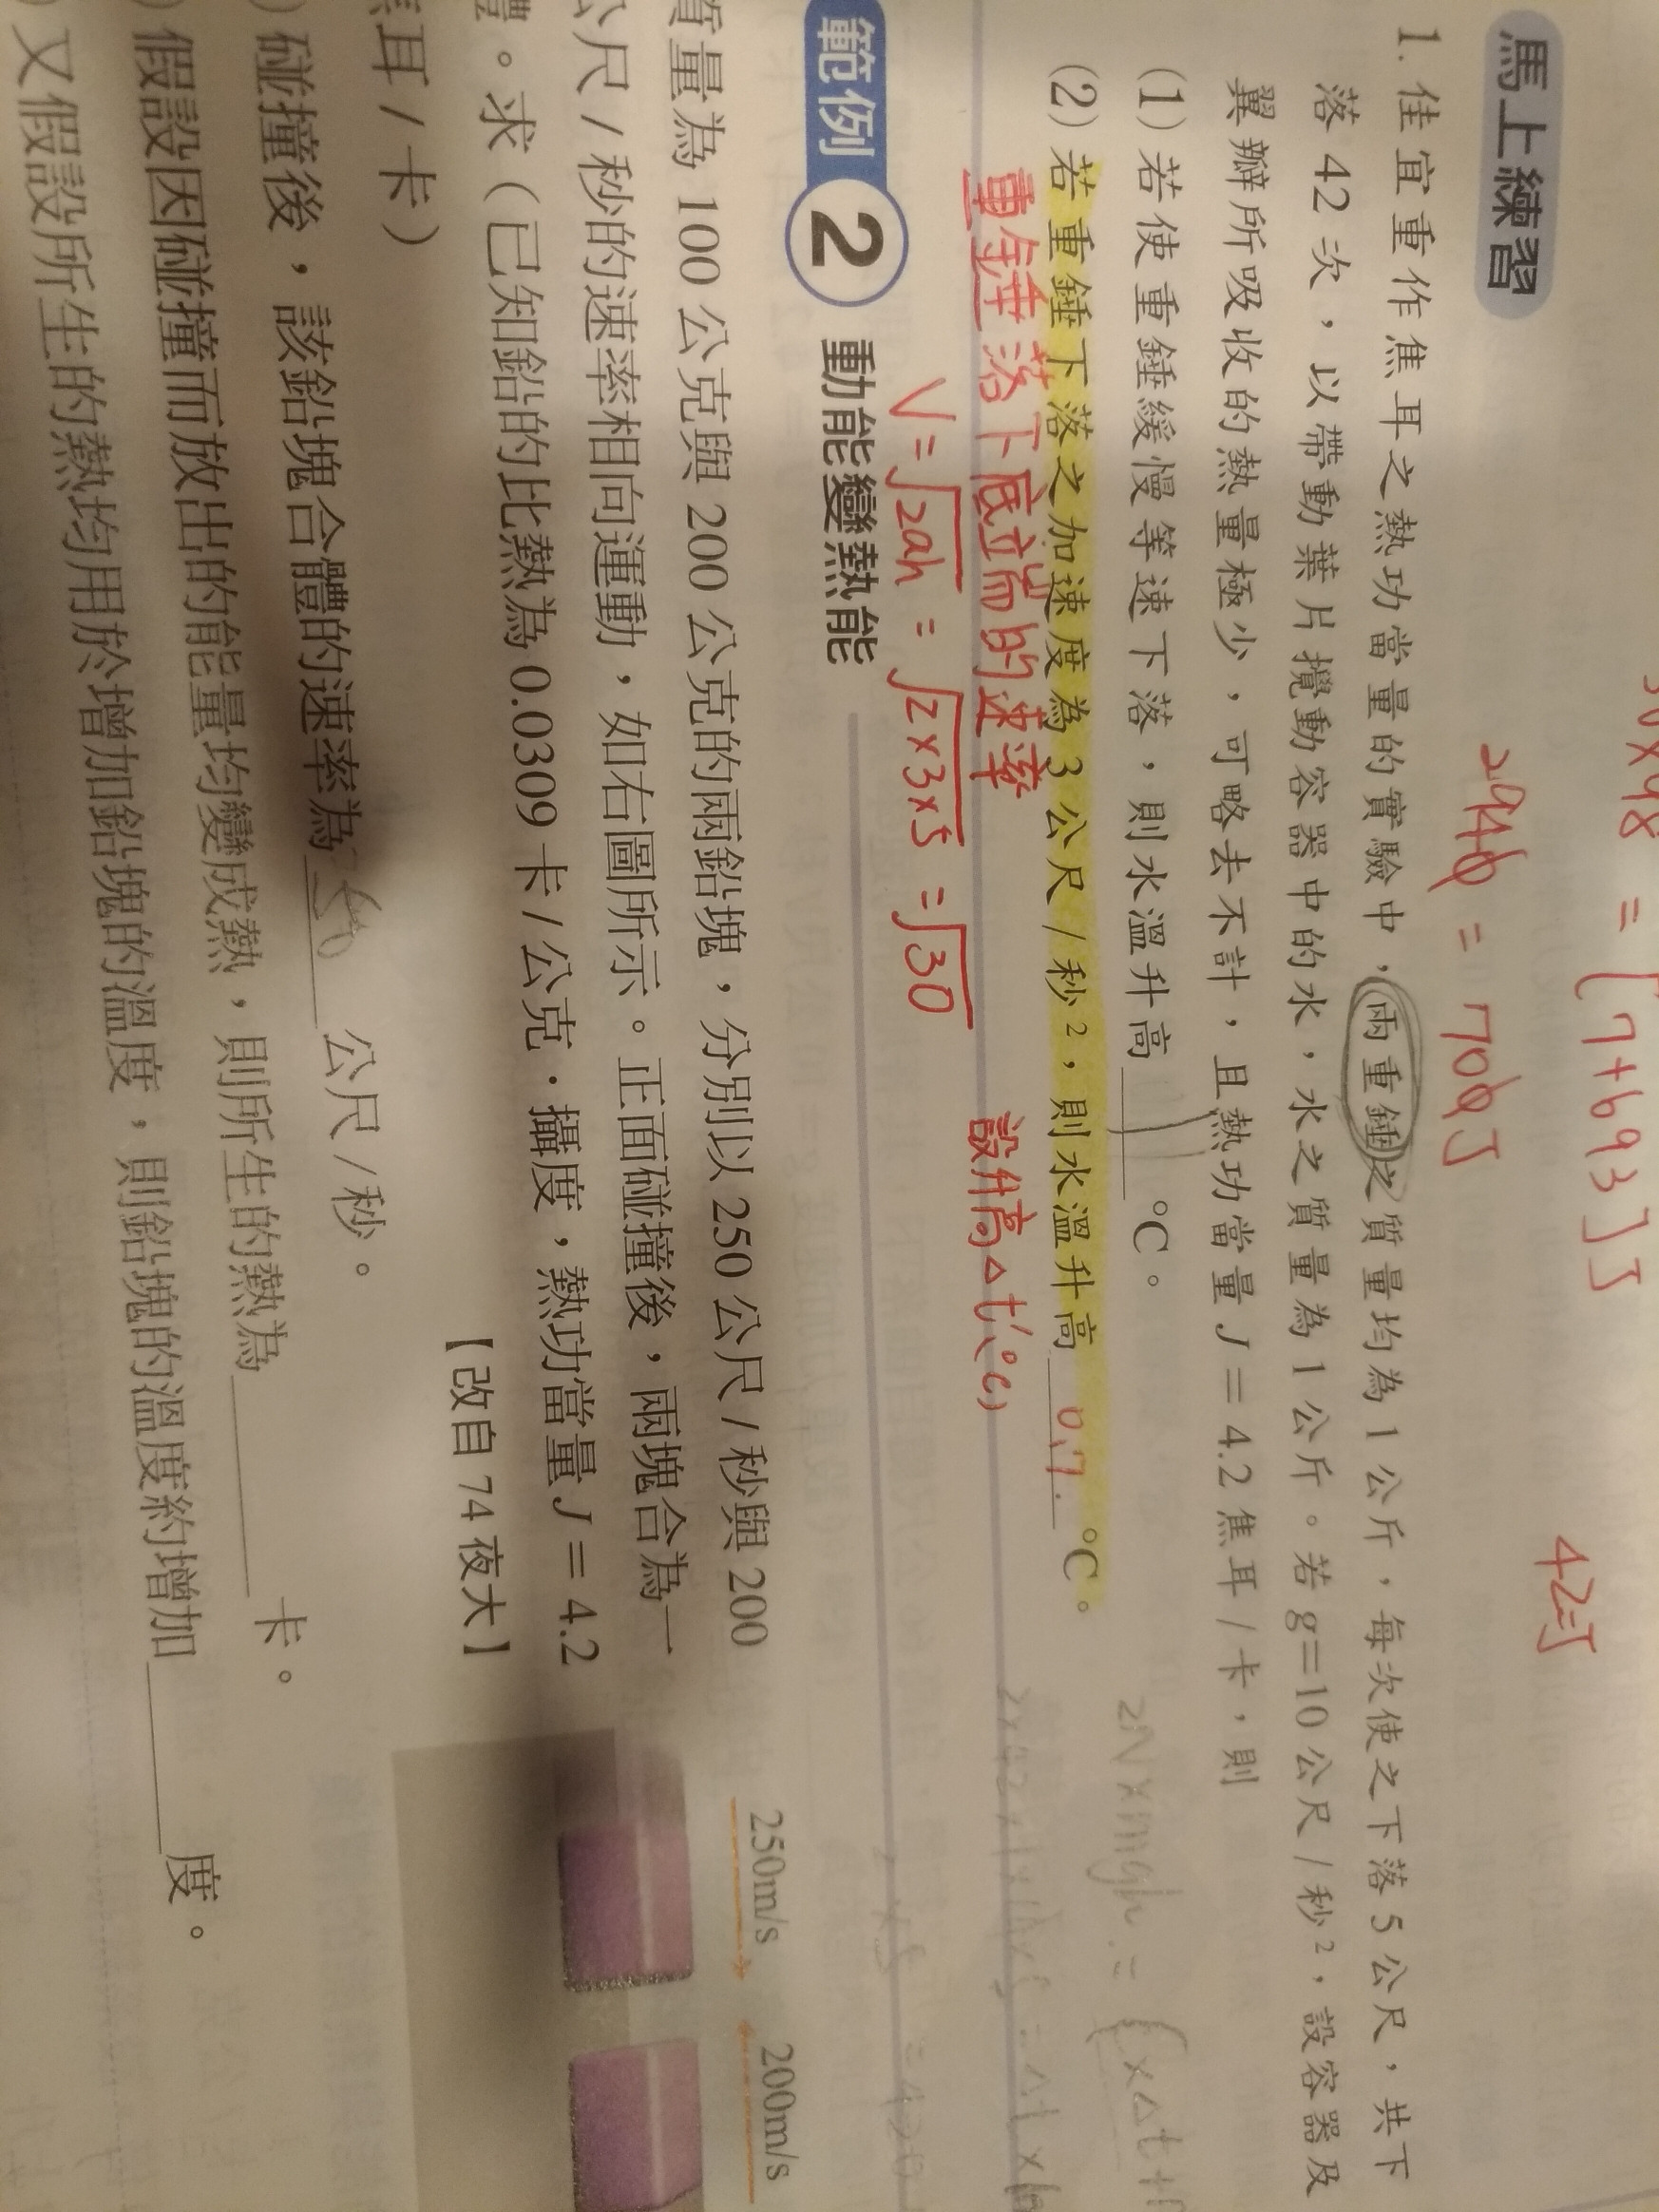 30×98 = [7+693]J
42J
2940 = 700J
馬上練習
1. 佳宜重作焦耳之熱功當量的實驗中，兩重錘之質量均為 1 公斤，每次使之下落 5 公尺，共下
落 42 次，以帶動葉片攪動容器中的水，水之質量為 1 公斤。若 g＝10 公尺 / 秒²，設容器及
翼瓣所吸收的熱量極少，可略去不計，且熱功當量 J ＝ 4.2 焦耳 / 卡，則
(1) 若使重錘緩慢等速下落，則水溫升高 1 °C。
(2) 若重錘下落之加速度為 3 公尺 / 秒²，則水溫升高 0.7 °C。
重錘落下底端的速率
設升高△t'(°C)
V = √2ah = √2×3×5 = √30
範例 2 動能變熱能
質量為 100 公克與 200 公克的兩鉛塊，分別以 250 公尺 / 秒與 200
公尺 / 秒的速率相向運動，如右圖所示。正面碰撞後，兩塊合為一
體。求（已知鉛的比熱為 0.0309 卡 / 公克．攝度，熱功當量 J ＝ 4.2
焦耳 / 卡）
【改自 74 夜大】
250m/s
200m/s
碰撞後，該鉛塊合體的速率為 50 公尺 / 秒。
假設因碰撞而放出的能量均變成熱，則所生的熱為 卡。
又假設所生的熱均用於增加鉛塊的溫度，則鉛塊的溫度約增加 度。